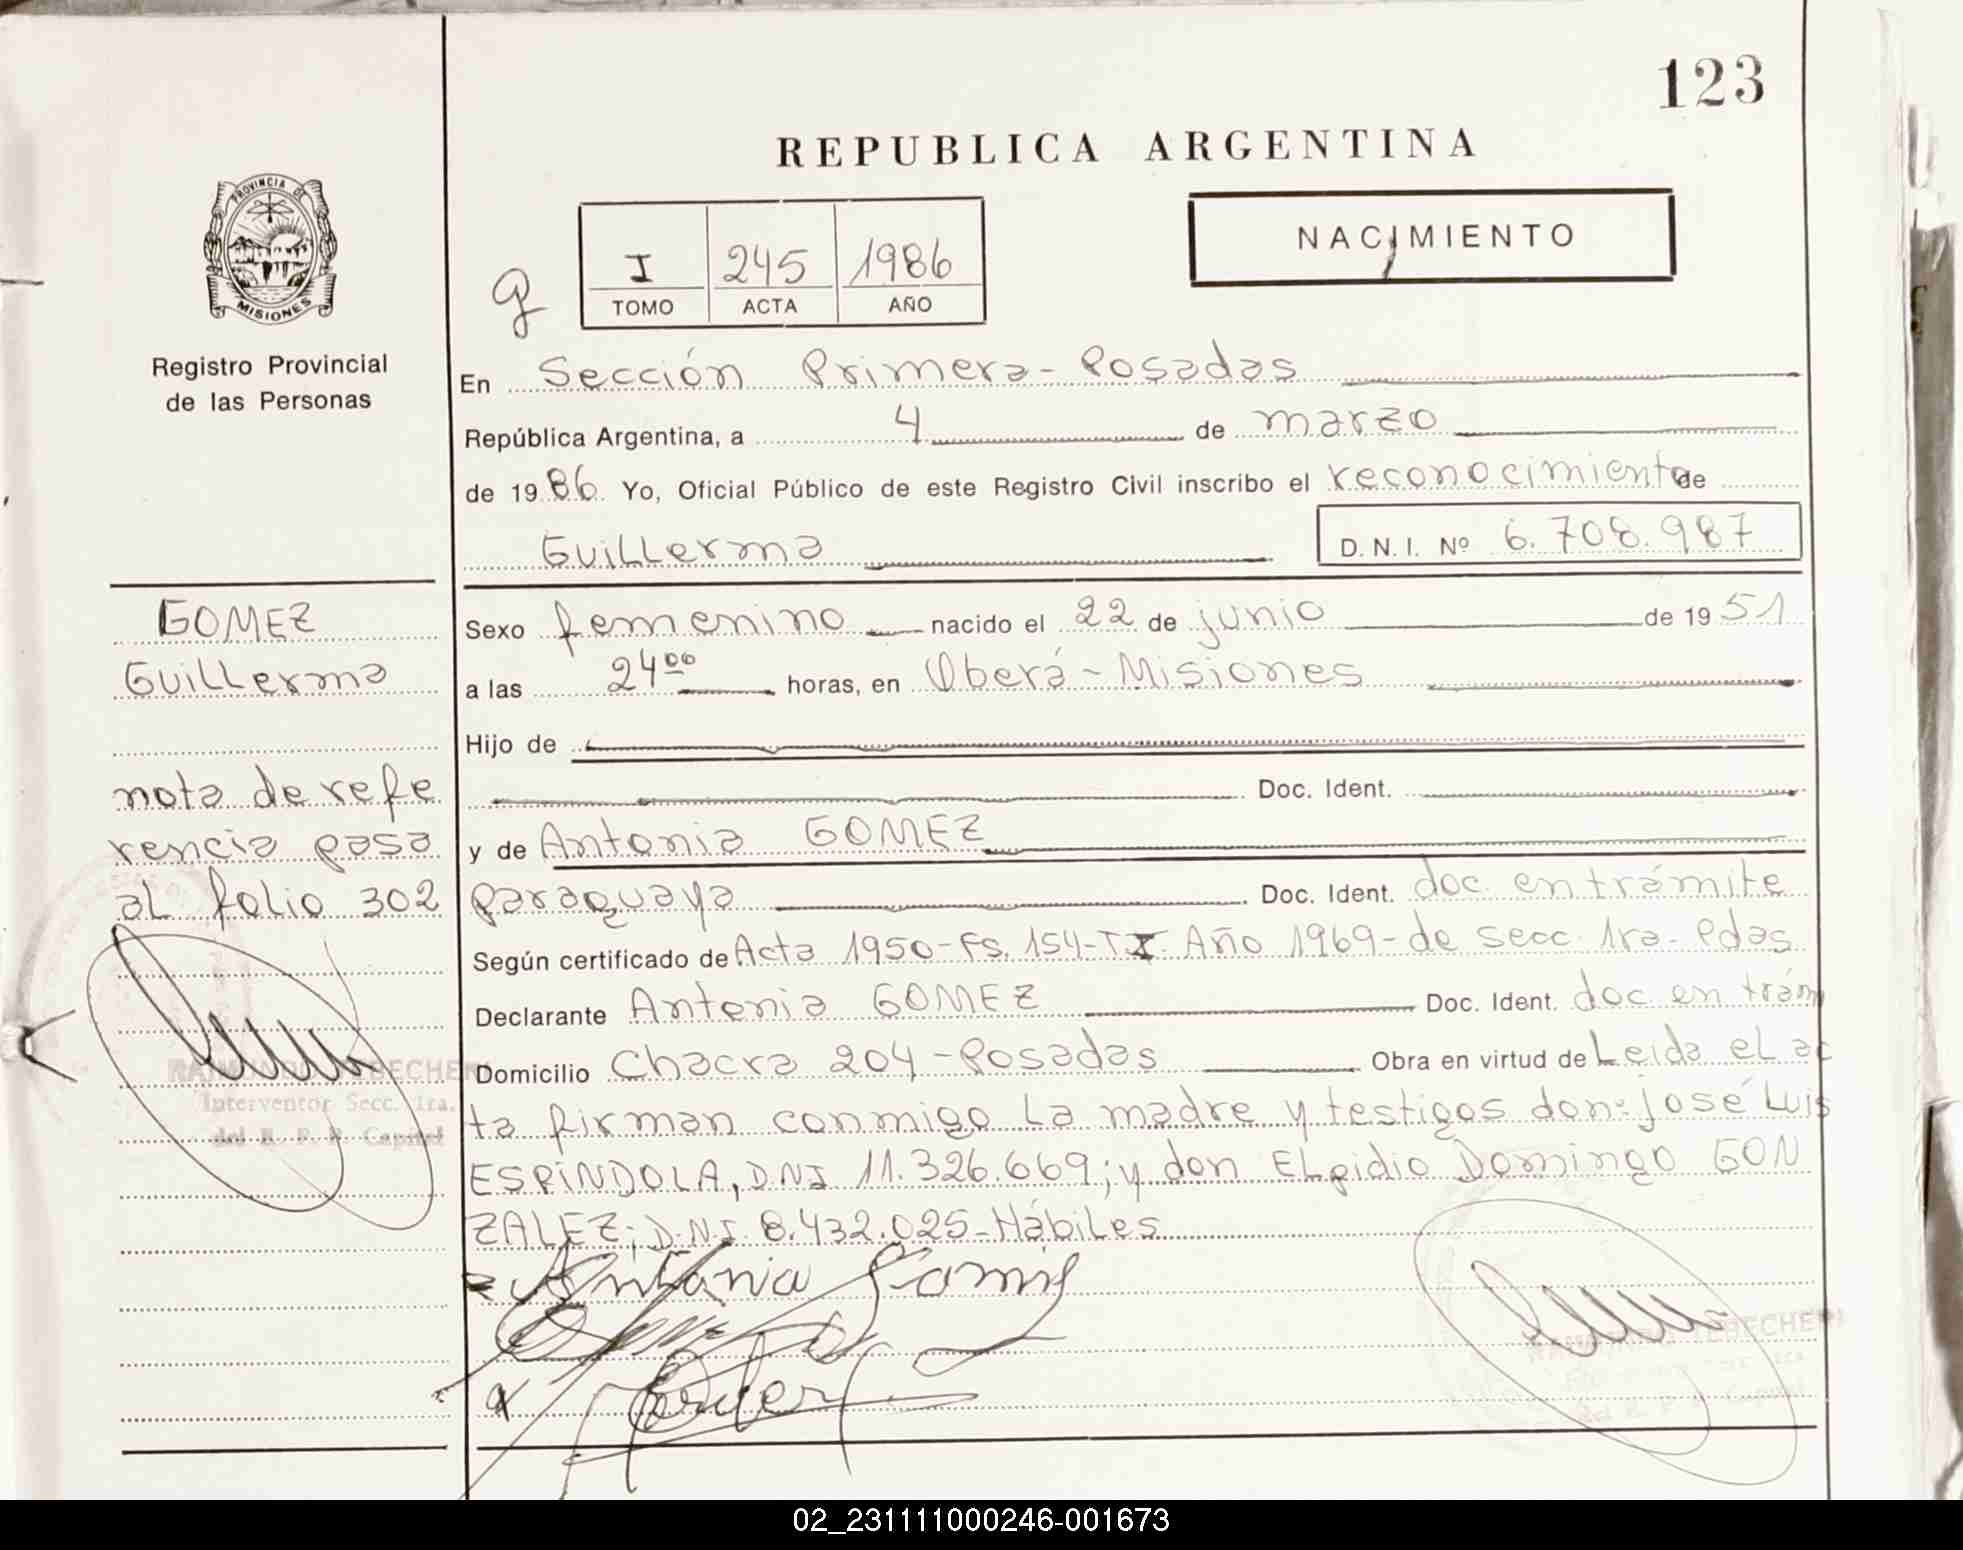 123
REPUBLICA ARGENTINA
PROVINCIA DE
MISIONES
Registro Provincial
de las Personas
g
I 245 1986
TOMO ACTA AÑO
NACIMIENTO
En Sección Primera - Posadas
República Argentina, a 4 de marzo
de 1986 Yo, Oficial Público de este Registro Civil inscribo el reconocimiento de
Guillerma D.N.I. Nº 6.708.987
GOMEZ
Guillerma
nota de refe
rencia pasa
al folio 302
Interventor Secc. 1ra.
del R. P. P. Capital
Sexo femenino nacido el 22 de junio de 1951
a las 24 00 horas, en Oberá - Misiones
Hijo de
Doc. Ident.
y de Antonia GOMEZ
paraguaya Doc. Ident. doc. en trámite
Según certificado de Acta 1950-Fs. 154-TI Año 1969-de secc. 1ra-Pdas
Declarante Antonia GOMEZ Doc. Ident. doc en trám
Domicilio Chacra 204 - Posadas Obra en virtud de Leida el ac
ta firman conmigo la madre y testigos don: José Luis
ESPÍNDOLA, DNI 11.326.669; y don Elpidio Domingo GON
ZALEZ; D.N.I. 8.432.025 - Hábiles
Antonia Gomes
02_231111000246-001673